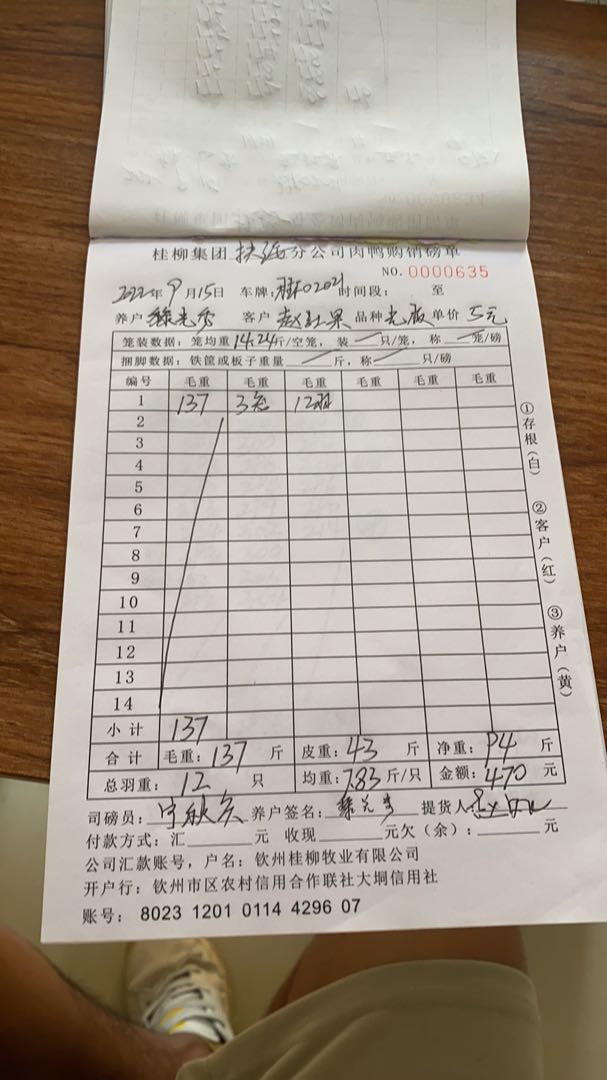 桂柳集团 分公司肉鸭购销磅单
NO. 0000635
2022年9月15日 车牌: 时间段: 至
养户 客户 品种 单价 5元
笼装数据: 笼均重14.24斤/空笼, 装 只/笼, 称 笼/磅
捆脚数据: 铁筐或板子重量 斤, 称 只/磅
编号 毛重 毛重 毛重 毛重 毛重 毛重
1 137 3笼 12羽
2
3
4
5
6
7
8
9
10
11
12
13
14
小计 137
合计 毛重: 137 斤 皮重: 43 斤 净重: 94 斤
总羽重: 12 只 均重: 7.83 斤/只 金额: 470 元
司磅员: 养户签名: 提货人:
付款方式: 汇 元 收现 元欠(余): 元
公司汇款账号, 户名: 钦州桂柳牧业有限公司
开户行: 钦州市区农村信用合作联社大垌信用社
账号: 8023 1201 0114 4296 07
①存根(白)
②客户(红)
③养户(黄)